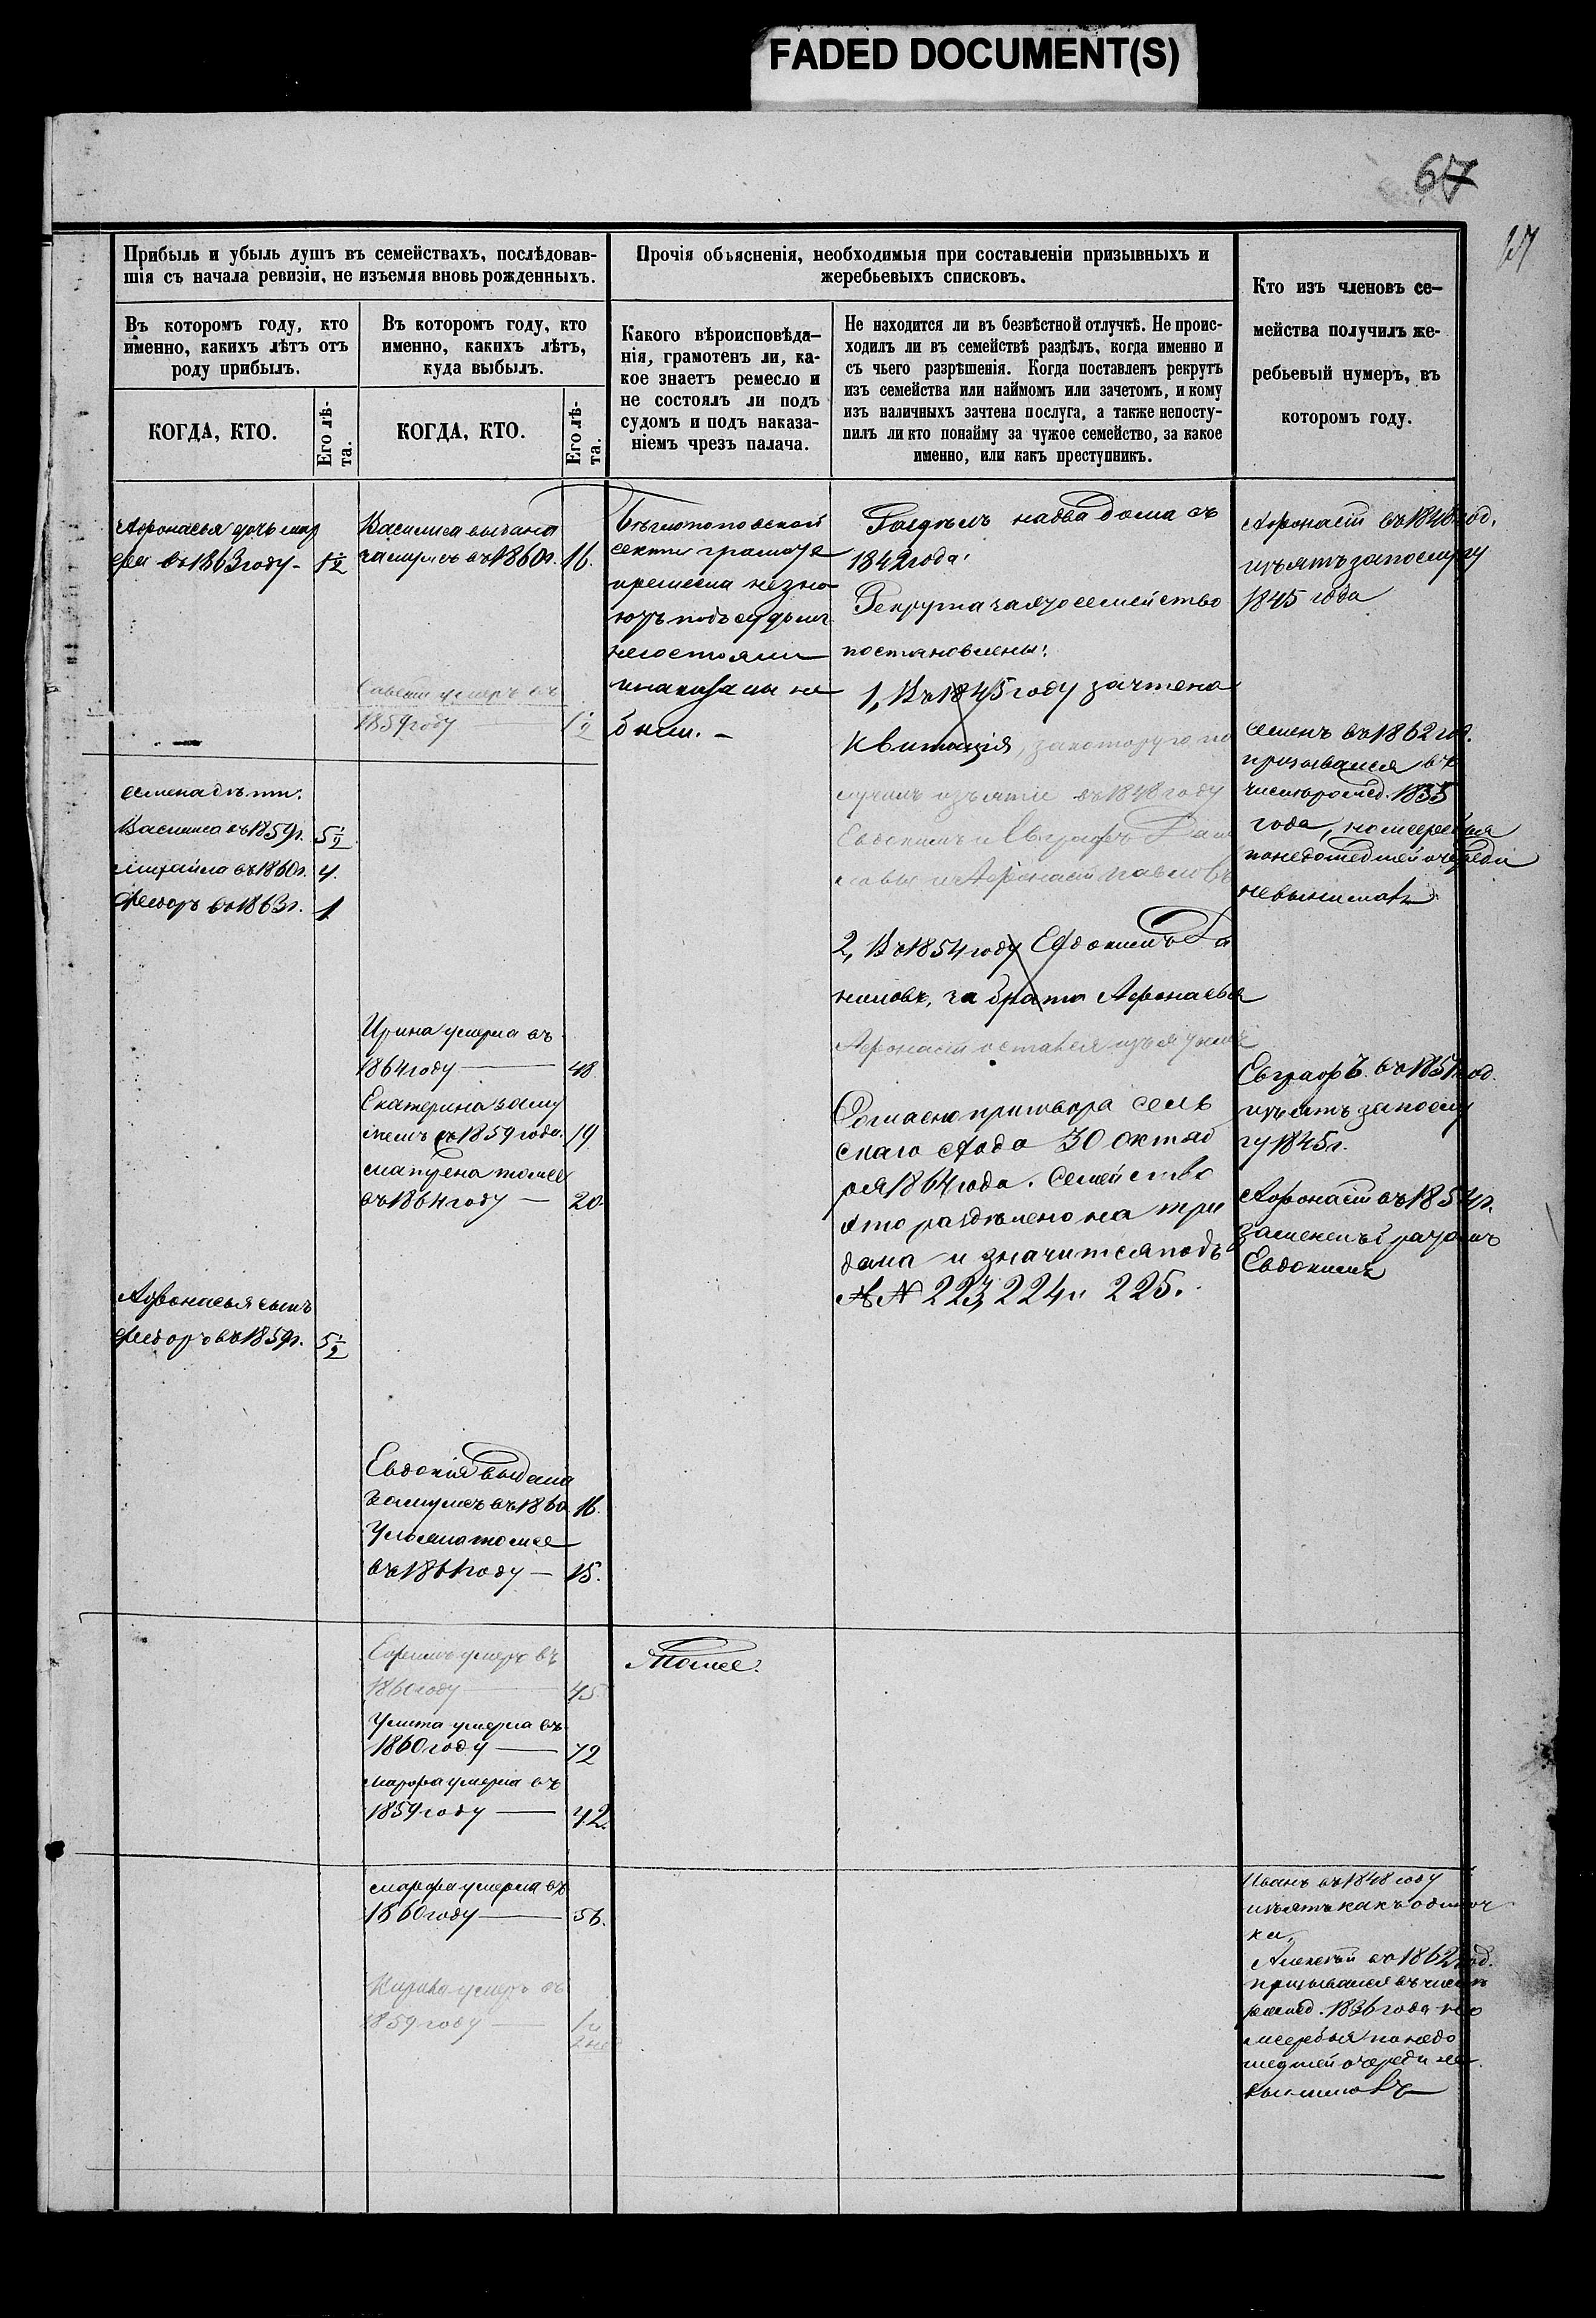 FADED DOCUMENT(S)
67
Прибыль и убыль душъ въ семействахъ, послѣдовав-
шія съ начала ревизіи, не изъемля вновь рожденныхъ.
Въ которомъ году, кто
именно, какихъ лѣтъ отъ
роду прибылъ.
КОГДА, КТО.
Его лѣ-
та.
Въ которомъ году, кто
именно, какихъ лѣтъ,
куда выбылъ.
КОГДА, КТО.
Его лѣ-
та.
Прочія объясненія, необходимыя при составленіи призывныхъ и
жеребьевыхъ списковъ.
Какого вѣроисповѣда-
нія, грамотенъ ли, ка-
кое знаетъ ремесло и
не состоялъ ли подъ
судомъ и подъ наказа-
ніемъ чрезъ палача.
Не находится ли въ безвѣстной отлучкѣ. Не проис-
ходилъ ли въ семействѣ раздѣлъ, когда именно и
съ чьего разрѣшенія. Когда поставленъ рекрутъ
изъ семейства или наймомъ или зачетомъ, и кому
изъ наличныхъ зачтена послуга, а также непосту-
пилъ ли кто понайму за чужое семейство, за какое
именно, или какъ преступникъ.
Кто изъ членовъ се-
мейства получилъ же-
ребьевый нумеръ, въ
которомъ году.
Афонасья дочь
въ 1863 году - 1½
Семена дѣти.
Василиса въ 1859 г. 5½
Михайла въ 1860 г. 4.
Федоръ въ 1863 г. 1
Афонасья сынъ
Федоръ въ 1859 г. 5½
Василиса выдана
замужъ въ 1860 г. 16.
Савелій умеръ въ
1859 году — 1½
Ирина умерла въ
1864 году — 48
Екатерина заму
жемъ съ 1859 года. 19
Матрена тоже
въ 1864 году — 20.
Евдокія выдана
замужъ въ 1860 16.
Ульяна тоже
въ 1861 году — 15.
Ефимъ умеръ въ
1860 году — 45
Улита умерла въ
1860 году — 72
Марфа умерла въ
1859 году — 42.
Марфа умерла въ
1860 году — 56.
умеръ въ
1859 году —
Бѣглопоповской
секты грамотѣ
и ремесла не зна
ютъ подъ судомъ
не состояли
и наказаны не
были. -
Тоже.
Раздѣлъ на два дома съ
1842 года.
Рекрута за это семейство
поставлены:
1, Въ 1845 году зачтена
квитанція, за которую по
лучилъ изъятіе въ 1848 году
Евдокимъ и Евграфъ Дани
ловы и Афонасій Павловъ
2, Въ 1854 году Евдокимъ Да
ниловъ, за брата Афонасья
Афонасій остался изъятымъ
Согласно приговора сель
скаго схода 30 октяб
ря 1864 года. Семейство
это раздѣлено на три
дома и значится подъ
№№ 223, 224 и 225.
Афонасій въ 1848 год.
изъятъ за послугу
1845 года
Семенъ въ 1862 год.
призывался въ
числѣ рожд. 1835
года, но жеребья
по недошедшей очереди
не вынималъ
Евграфъ въ 1851 год.
изъятъ за послу
гу 1845 г.
Афонасій въ 1854 г.
замененъ братомъ
Евдокимъ
Иванъ въ 1848 году
изъятъ какъ одиноч
ка,
Алексѣй въ 1862 год.
призывался въ числѣ
рожд. 1836 года но
жеребья по недо
шедшей очереди не
вынималъ